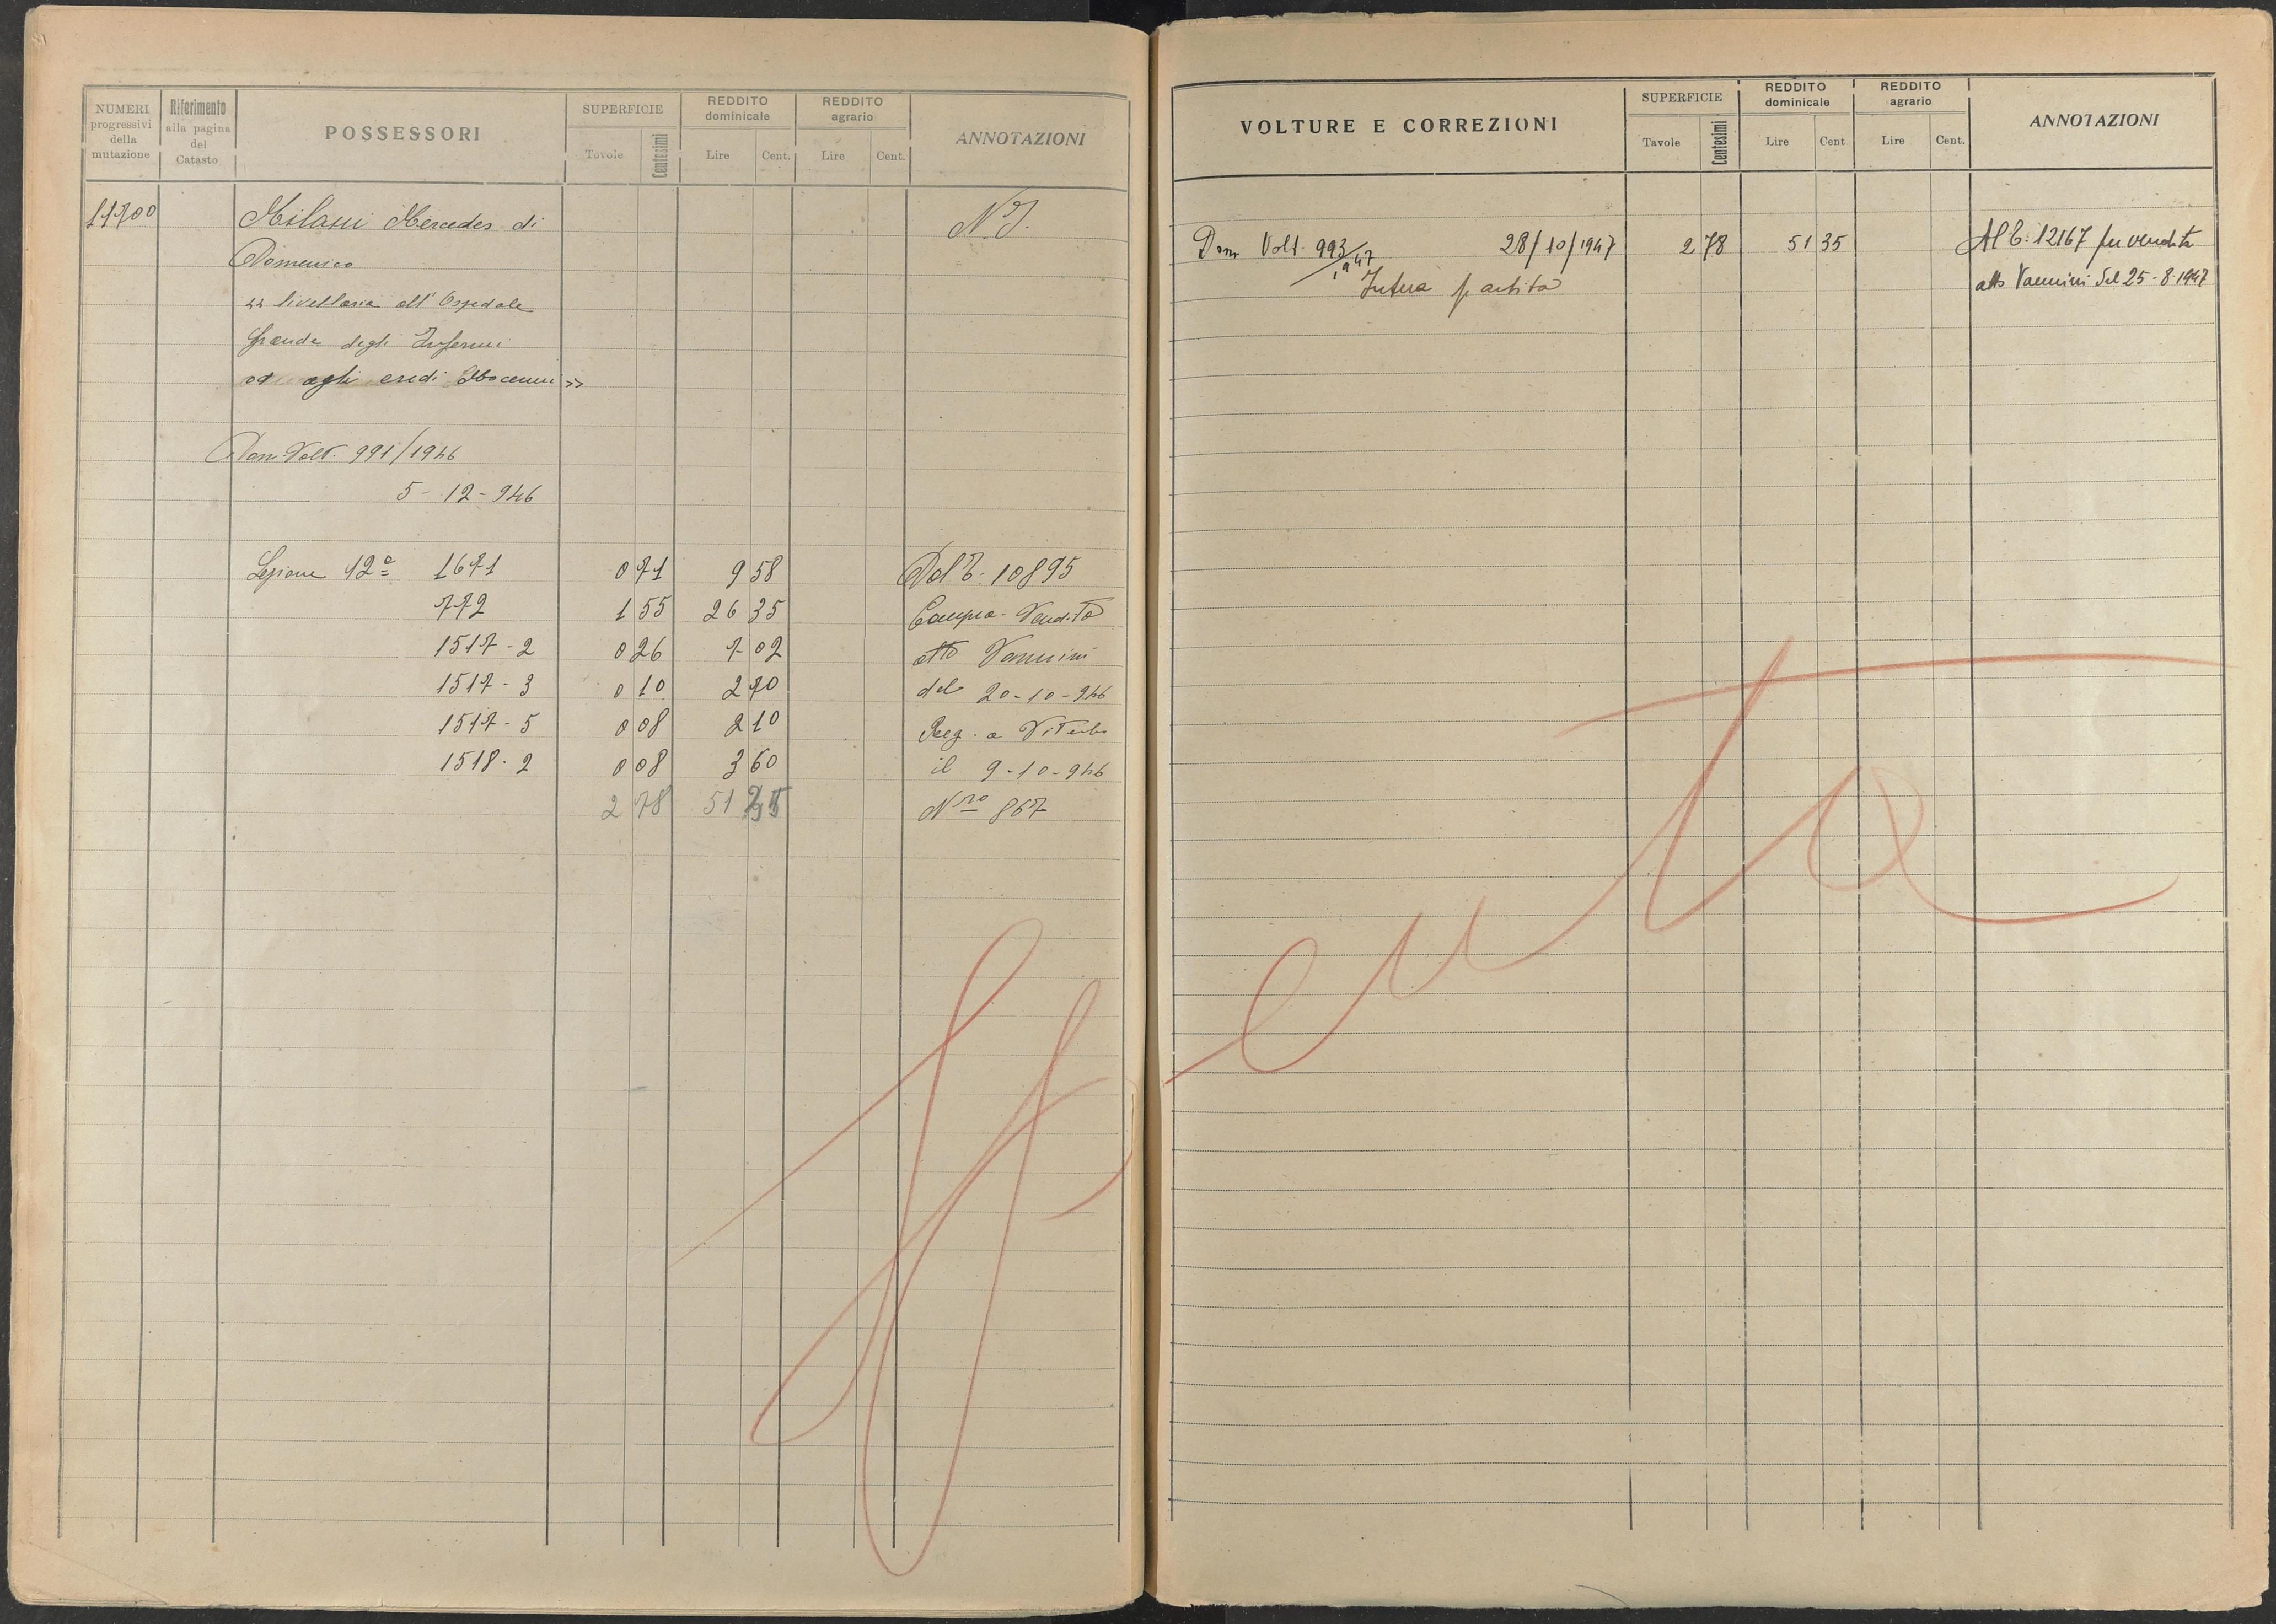 NUMERI progressivi della mutazione
Riferimento alla pagina del Catasto
POSSESSORI
SUPERFICIE
Tavole Centesimi
REDDITO dominicale
Lire Cent.
REDDITO agrario
Lire Cent.
ANNOTAZIONI
11700 Milani Mercedes di N.I.
Domenico
« livellaria all' Ospedale
Grande degli Infermi
agli eredi »
Dom. Volt. 991/1946
5-12-946
Sezione 12ª 1671 0 71 9 58 Dal T. 10895
772 1 55 26 35 Compra-Vendita
1517-2 0 26 7 02 atto Vannini
1517-3 0 10 2 70 del 20-10-946
1517-5 0 08 2 10 Reg. a Viterbo
1518-2 0 08 3 60 il 9-10-946
2 78 51 35 Nro 867
VOLTURE E CORREZIONI
SUPERFICIE
Tavole Centesimi
REDDITO dominicale
Lire Cent
REDDITO agrario
Lire Cent.
ANNOTAZIONI
Dom Volt. 993/1947 28/10/1947 2 78 51 35 Al T: 12167 per vendita
Intera partita atto Vannini del 25-8-1947
Spenta